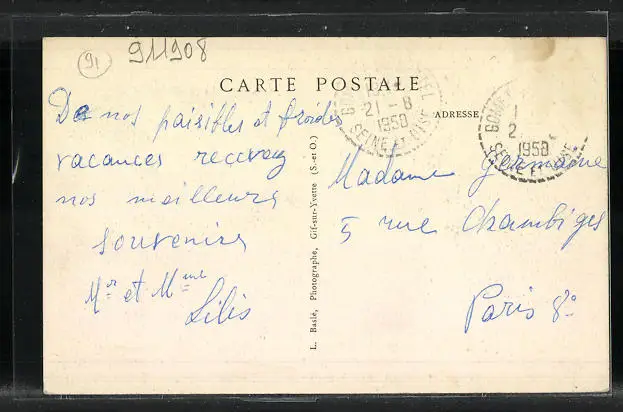 91
911908
CARTE POSTALE
ADRESSE
21 - 8
1950
SEINE ET OISE
1950
SEINE ET OISE
De nos paisibles et froides
vacances recevez
nos meilleurs
souvenirs
Mr et Mme
Lilis
Madame Germaine
5 rue Chambiges
Paris 8e
L. Basle, Photographe, Gif-sur-Yvette (S.-et-O.)